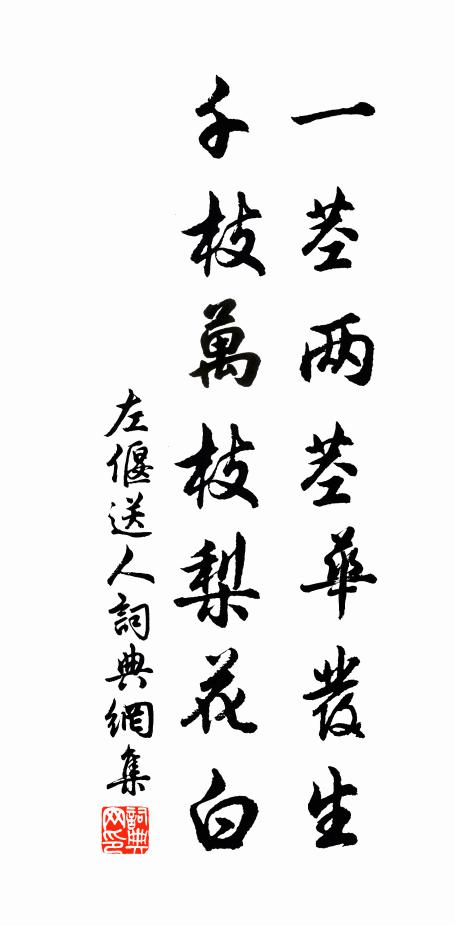 一茎两茎華發生
千枝萬枝梨花白
左偃送人詞典網集
詞典网印